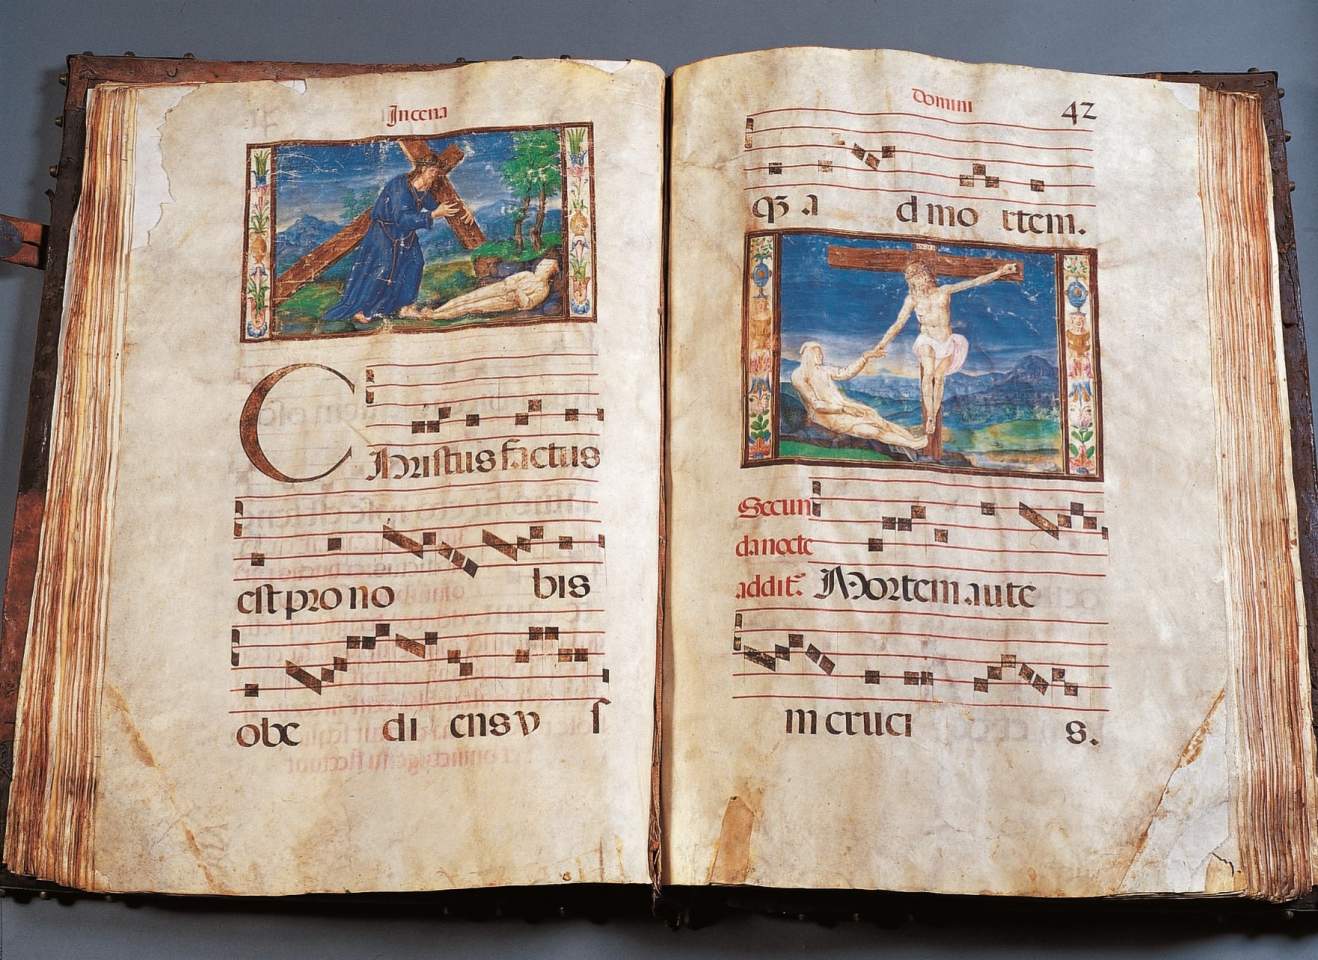 In cena
CHristus factus
est pro no bis
obe di ens v s
Domini 42
qz a d mo rtem.
Secun
da nocte
addit. Mortem aute
m cruci s.